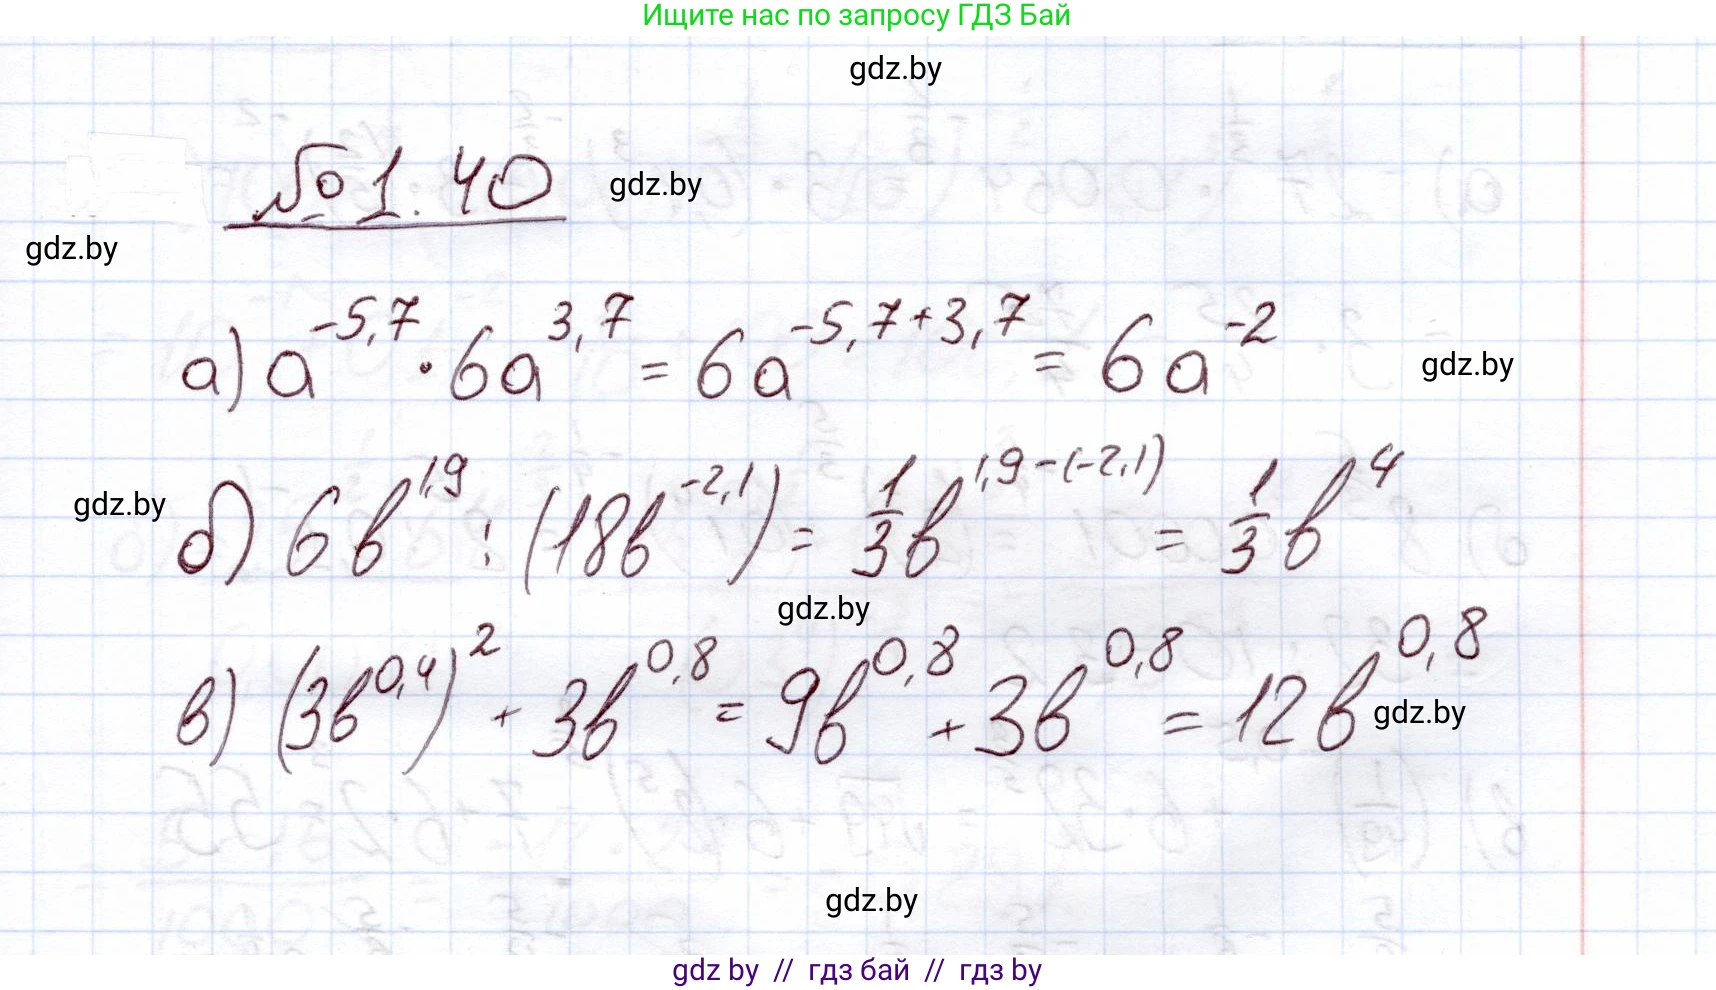 Ищите нас по запросу ГДЗ Бай
gdz.by
№ 1.40
gdz.by
gdz.by
а) a^{-5,7} · 6a^{3,7} = 6a^{-5,7+3,7} = 6a^{-2}
gdz.by
б) 6b^{1,9} : (18b^{-2,1}) = \frac{1}{3}b^{1,9-(-2,1)} = \frac{1}{3}b^{4}
gdz.by
gdz.by
в) (3b^{0,4})^{2} + 3b^{0,8} = 9b^{0,8} + 3b^{0,8} = 12b^{0,8}
gdz.by
gdz.by
gdz by // гдз бай // гдз by